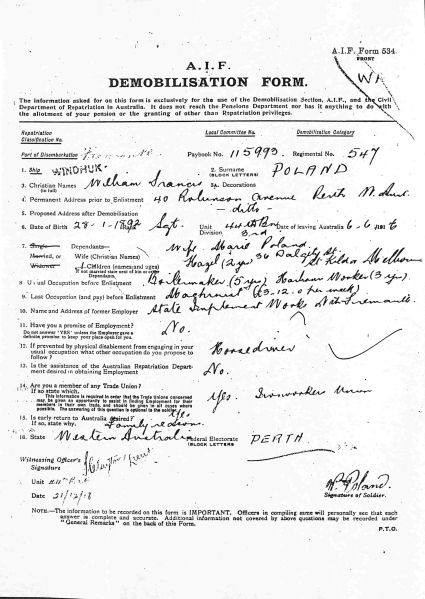 A.I.F. Form 534.
FRONT
A.I.F.
DEMOBILISATION FORM.
WA
The information asked for on this form is exclusively for the use of the Demobilisation Section, A.I.F., and the Civil
Department of Repatriation in Australia. It does not reach the Pensions Department nor has it anything to do with
the allotment of your pension or the granting of other than Repatriation privileges.
Repatriation Classification No.
Local Committee No.
Demobilisation Category
Port of Disembarkation Fremantle Paybook No. 115993. Regimental No. 547
1. Ship WINDHUK. 2. Surname (BLOCK LETTERS) POLAND
3. Christian Names (in full) William Francis 3a. Decorations
4. Permanent Address prior to Enlistment 40 Robinson Avenue Perth W. Aus.
5. Proposed Address after Demobilisation - ditto -
6. Date of Birth 28-1-1892 Sgt. Unit 44th Bn Division 3rd Date of leaving Australia 6-6-1916
7. Single Dependants— Wife Marie Poland.
Married, or Wife (Christian Names) Hazel (2 yrs) 36 Dalgety St.
Widowed Children (names and ages) St Kilda Melbourne
If not married since state of in or other Dependants
8. Usual Occupation before Enlistment Boilermaker (5 yrs)
9. Last Occupation (and pay) before Enlistment Machinist (£3-12.0 per week)
10. Name and Address of former Employer State Implement Works Nth Fremantle.
11. Have you a promise of Employment? No.
Do not answer 'YES' unless the Employer gave a
definite promise to keep your place open for you.
12. If prevented by physical disablement from engaging in your
usual occupation what other occupation do you propose to
follow? Horsedriver
13. Is the assistance of the Australian Repatriation Depart-
ment desired in obtaining Employment? No.
14. Are you a member of any Trade Union?
If so state which. Yes. Ironworkers Union
This information is required in order that the Trade Unions concerned
may be given an opportunity to assist in finding Employment for their
members in their own trade, and should be given in all cases where
possible. The answering of this question is optional to the soldier.
15. Is early return to Australia desired? Yes.
If so, state why. Family reasons.
16. State Western Australia Federal Electorate (BLOCK LETTERS) PERTH
Witnessing Officer's
Signature
Unit
Date 21/12/18
W. Poland.
Signature of Soldier.
NOTE.—The information to be recorded on this form is IMPORTANT. Officers in compiling same will personally see that each
answer is complete and accurate. Additional information not covered by above questions may be recorded under
"General Remarks" on the back of this Form.
P.T.O.